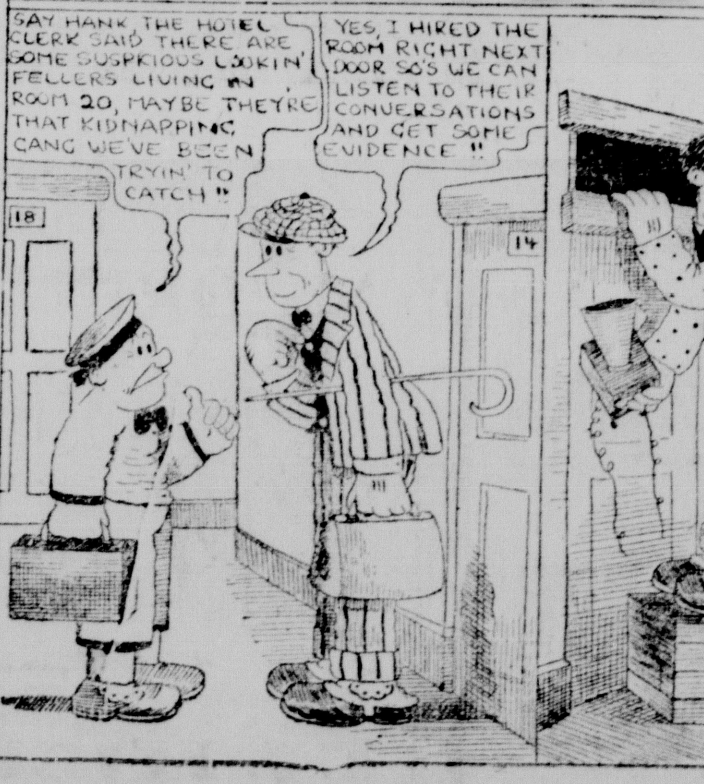 SAY HANK THE HOTEL
CLERK SAID THERE ARE
SOME SUSPICIOUS LOOKIN'
FELLERS LIVING IN
ROOM 20, MAYBE THEYRE
THAT KIDNAPPING
GANG WE'VE BEEN
TRYIN' TO
CATCH !!
YES, I HIRED THE
ROOM RIGHT NEXT
DOOR SO'S WE CAN
LISTEN TO THEIR
CONVERSATIONS
AND GET SOME
EVIDENCE !!
18
14